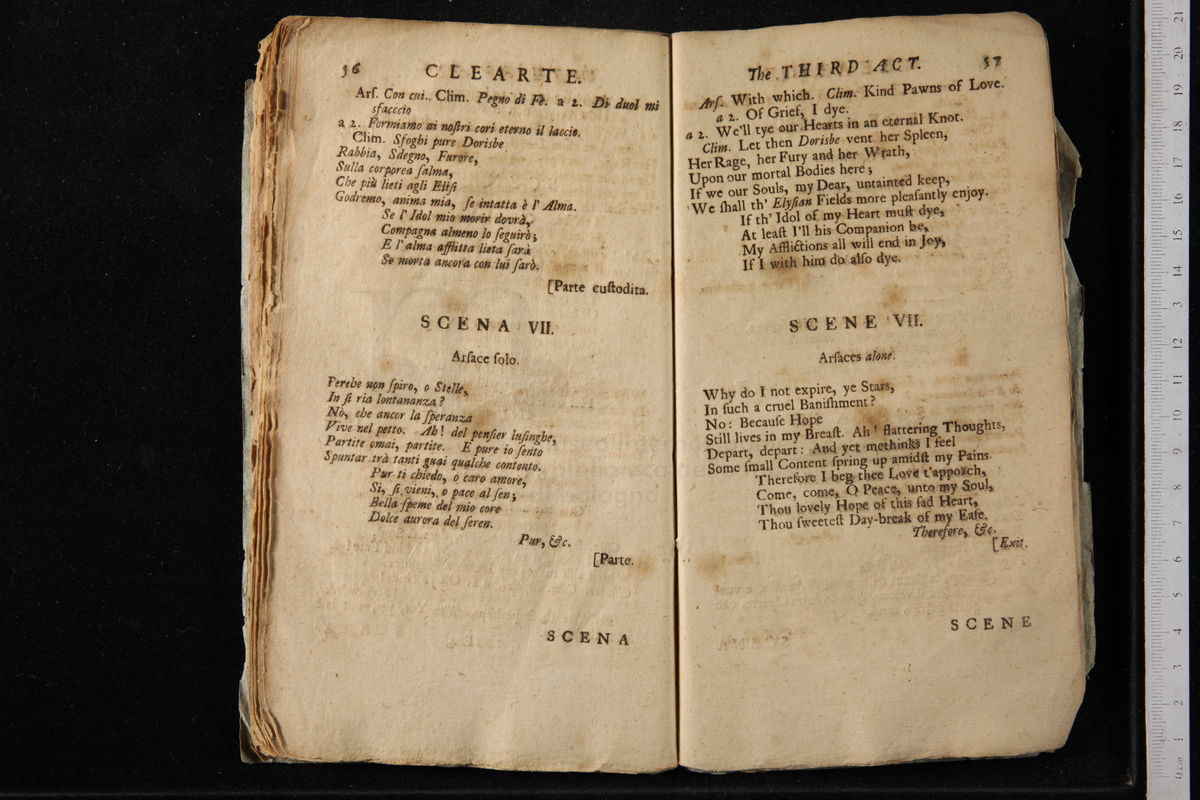 56 CLEARTE.
Arſ. Con cui.. Clim. Pegno di Fè. a 2. Di duol mi
sfaccio
a 2. Formiamo ai noſtri cori eterno il laccio.
Clim. Sfoghi pure Dorisbe
Rabbia, Sdegno, Furore,
Sulla corporea ſalma,
Che più lieti agli Eliſi
Godremo, anima mia, ſe intatta è l' Alma.
Se l' Idol mio morir dovrà,
Compagna almeno lo ſeguirò;
E l' alma afflitta lieta ſarà
Se morta ancora con lui ſarò.
[Parte cuſtodita.
SCENA VII.
Arſace ſolo.
Perche non ſpiro, o Stelle,
In ſi ria lontananza?
Nò, che ancor la ſperanza
Vive nel petto. Ah! del penſier luſinghe,
Partite omai, partite. E pure io ſento
Spuntar trà tanti guai qualche contento.
Pur ti chiedo, o caro amore,
Si, ſi vieni, o pace al ſen;
Bella ſpeme del mio core
Dolce aurora del ſeren.
Pur, &c.
[Parte.
SCENA
The THIRD ACT. 57
Arſ. With which. Clim. Kind Pawns of Love.
a 2. Of Grief, I dye.
a 2. We'll tye our Hearts in an eternal Knot.
Clim. Let then Dorisbe vent her Spleen,
Her Rage, her Fury and her Wrath,
Upon our mortal Bodies here;
If we our Souls, my Dear, untainted keep,
We ſhall th' Elyſian Fields more pleaſantly enjoy.
If th' Idol of my Heart muſt dye,
At leaſt I'll his Companion be,
My Afflictions all will end in Joy,
If I with him do alſo dye.
SCENE VII.
Arſaces alone.
Why do I not expire, ye Stars,
In ſuch a cruel Baniſhment?
No: Becauſe Hope
Still lives in my Breaſt. Ah! flattering Thoughts,
Depart, depart: And yet methinks I feel
Some ſmall Content ſpring up amidſt my Pains.
Therefore I beg thee Love t'approach,
Come, come, O Peace, unto my Soul,
Thou lovely Hope of this ſad Heart,
Thou ſweeteſt Day-break of my Eaſe.
Therefore, &c.
[Exit.
SCENE